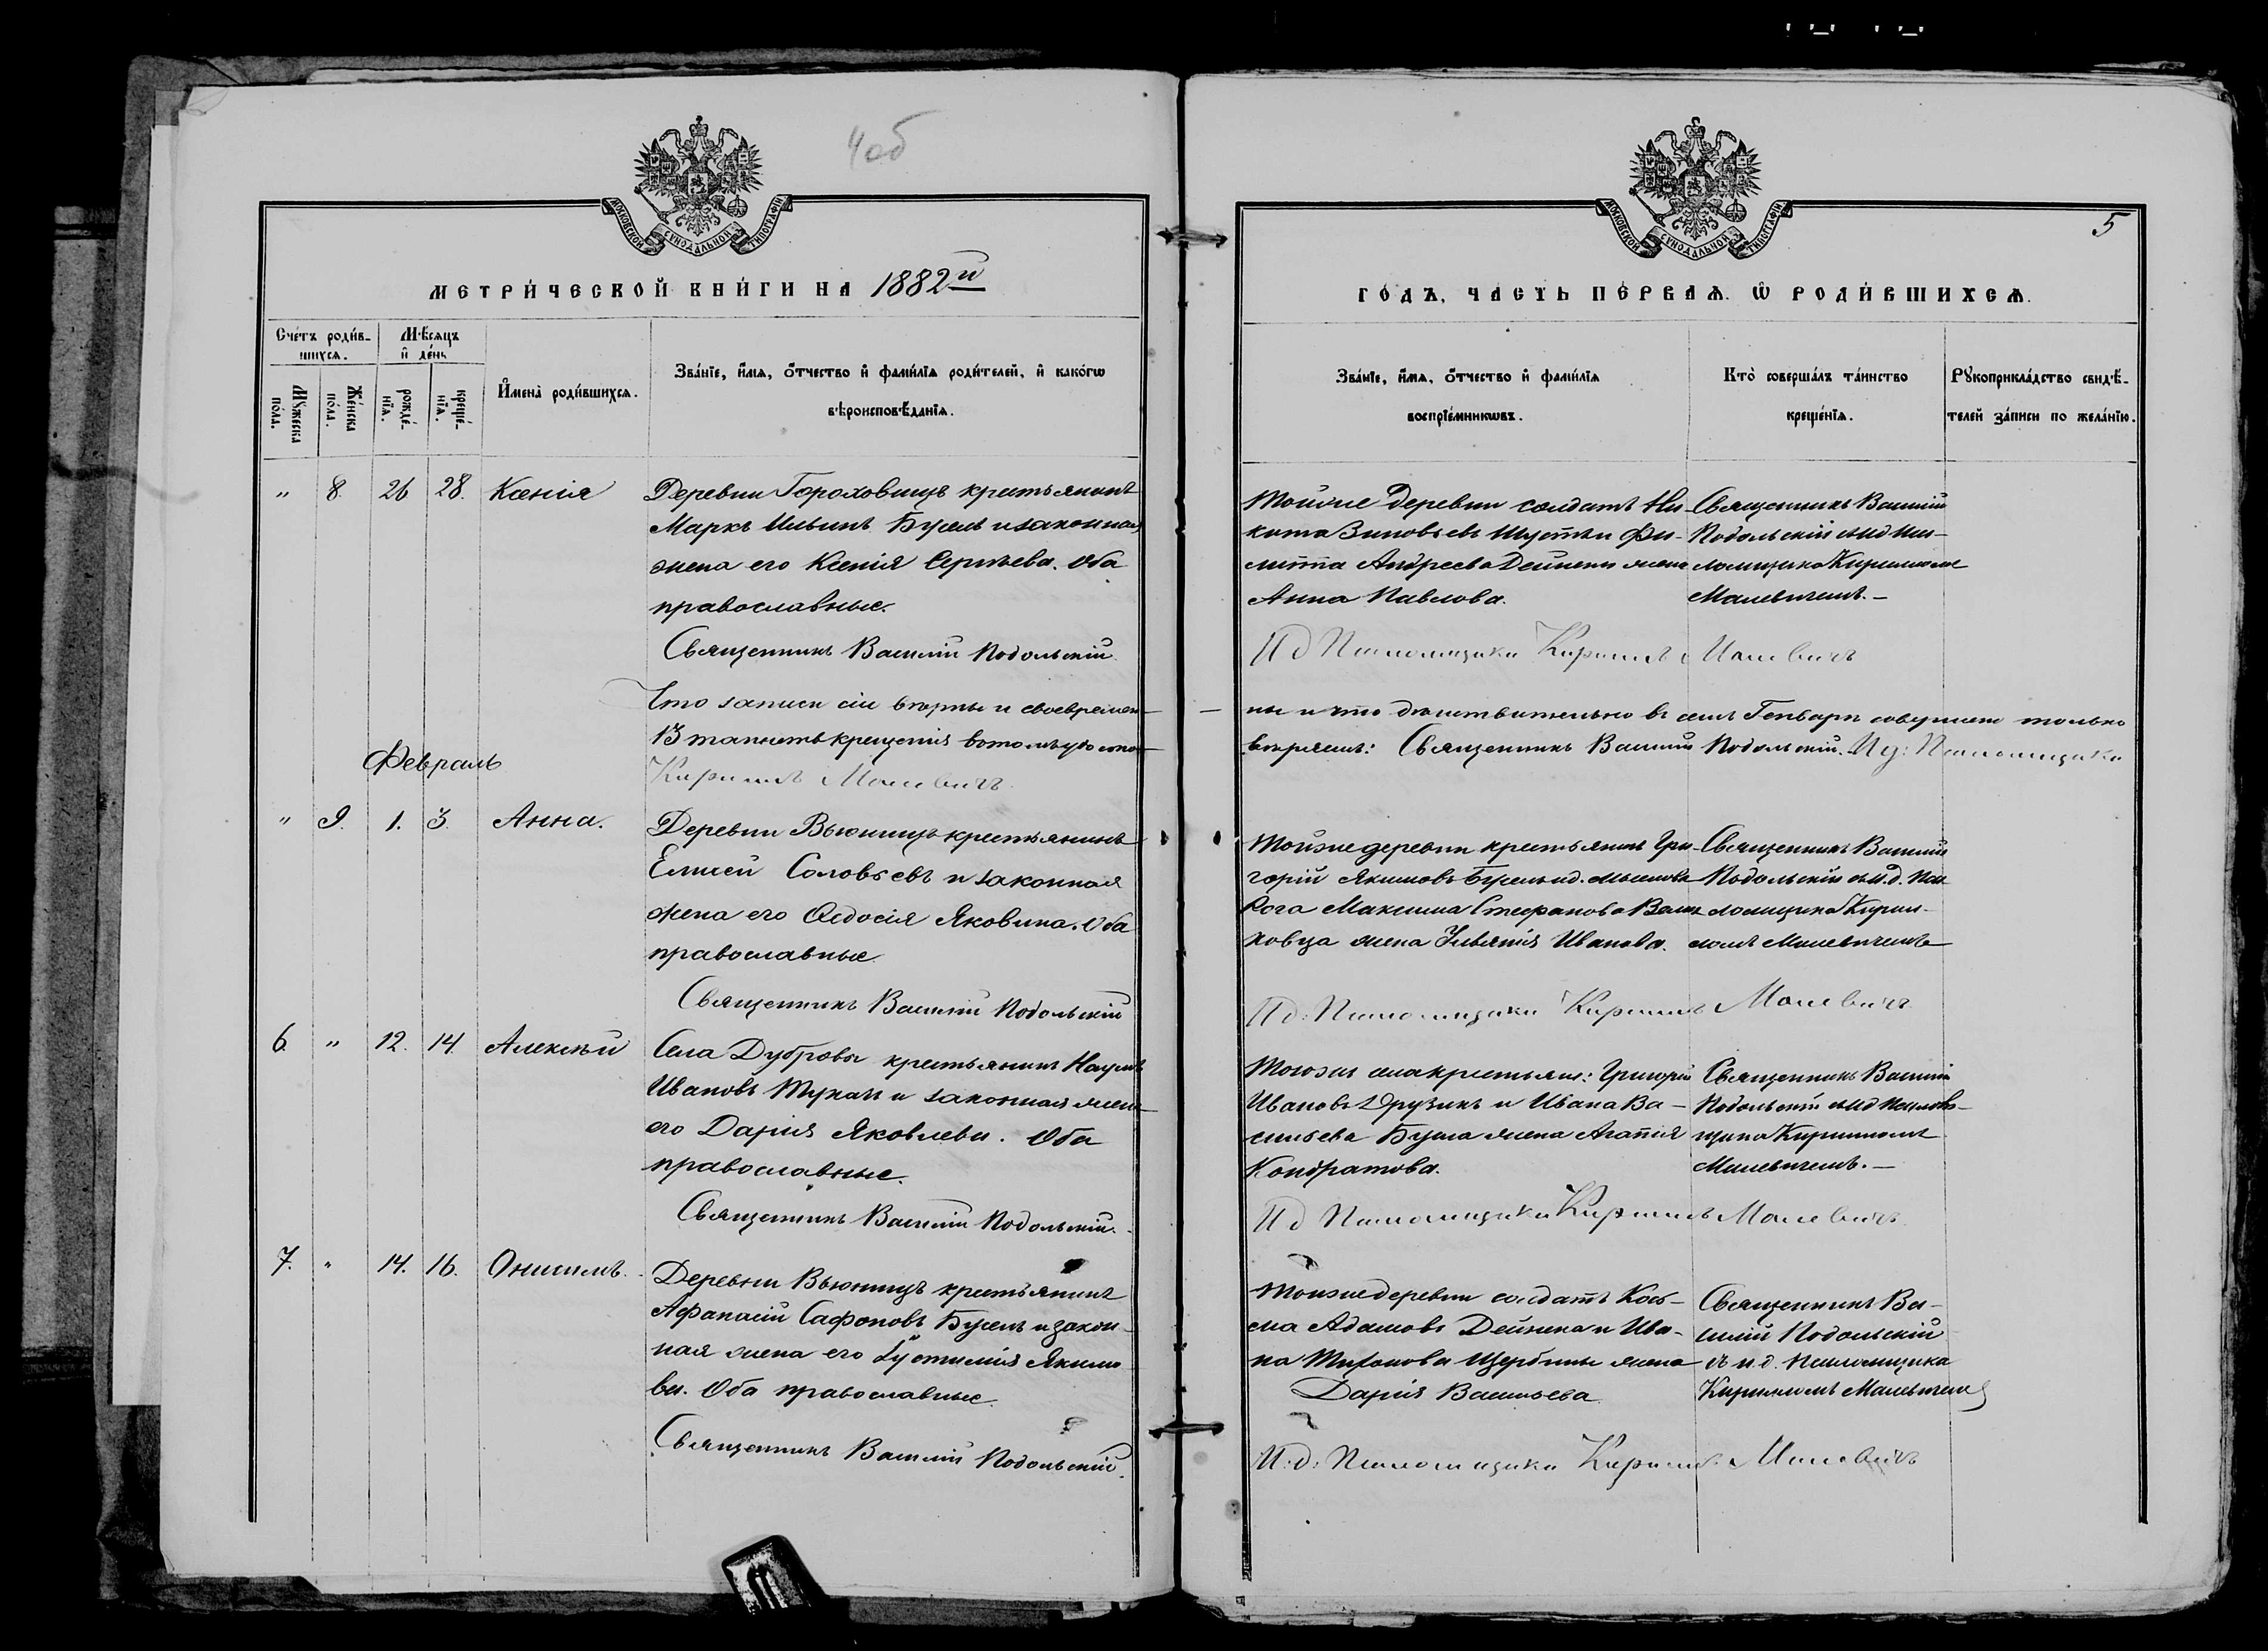 4об
МОСКОВСКОЙ СѴНОДАЛЬНОЙ ТИПОГРАФІИ
МЕТРИ́ЧЕСКОЙ КНИ́ГИ НА 1882й
Сче́тъ роди́в-
шихся.
Мѣсяцъ
и день
Мꙋжеска по́ла.
Же́нска по́ла.
рожде́-
нїя.
креще́-
нїя.
И҆мена̀ роди́вшихся.
Зва́нїе, и҆́мя, ѻ҆́тчество и҆ фами́лїя роди́телей, и҆ како́гѡ
вѣроисповѣ́данїя.
" 8. 26 28. Ксенія
Деревни Гороховищъ крестьянинъ
Маркъ Ильинъ Бусел и законная
жена его Ксенія Сергѣева. Оба
православные.
Священникъ Василій Подольскій
Что записи сіи вѣрны и своевремен-
Февраль
Кириллъ Малевичъ
" 9. 1. 3. Анна.
Деревни Вьюнищъ крестьянинъ
Елисей Соловьевъ и законная
жена его Ѳедосія Яковина. Оба
православные.
Священникъ Василій Подольскій
6. " 12. 14. Алексѣй
Села Дубровы крестьянинъ Наумъ
Ивановъ и законная жена
его Дарія Яковлева. Оба
православные.
Священникъ Василій Подольскій.
7. " 14. 16. Онисимъ.
Деревни Вьюнищъ крестьянинъ
Афанасій Сафоновъ Бусел и закон-
ная жена его Іустинія Якимо
ва. Оба православные.
Священникъ Василій Подольскій.
5
МОСКОВСКОЙ СѴНОДАЛЬНОЙ ТИПОГРАФІИ
ГО́ДЪ, ЧА́СТЬ ПЕ́РВАЯ. Ѽ РОДИ́ВШИХСЯ.
Зва́нїе, и҆́мя, ѻ҆́тчество и҆ фами́лїя
воспрїе́мникѡвъ.
Кто̀ соверша́лъ та́инство
креще́нїя.
Рꙋкоприкла́дство свидѣ́-
телей за́писи по жела́нїю.
Тойже деревни солдатъ Ни-
кита Зиновьевъ и Фи-
липпа Андреева Дейнеки жена
Анна Павлова.
Священникъ Василій
Подольскій съ и д пса-
ломщика Кирилломъ
Малевичемъ.-
И д Псаломщика Кириллъ Малевичъ
ны и что дѣйствительно въ семъ Генварѣ совершено только
вѣрляемъ: Священникъ Василій Подольскій. И д: Псаломщика
Тойже деревни крестьянинъ Гри-
горій Якимовъ
Максима Стефанова
ховца жена Иванова.
Священникъ Василій
Подольскій съ и.д. пса-
ломщика Кирил-
ломъ Малевичемъ
И д: Псаломщика Кириллъ Малевичъ
Тогоже села крестьяне: Григорій
Ивановъ Друзикъ и Ивана Ва-
сильева жена Агапія
Кондратова.
Священникъ Василій
Подольскій съ и д псалом-
щика Кирилломъ
Малевичемъ.-
И д Псаломщика Кириллъ Малевичъ
Тойже деревни солдатъ Козь-
ма Адамовъ Дейнека и Ива-
на Тихонова Щербины жена
Дарія Васильева
Священникъ Ва-
силій Подольскій
съ и.д. псаломщика
Кирилломъ Малевичемъ
И:д: Псаломщика Кириллъ Малевичъ